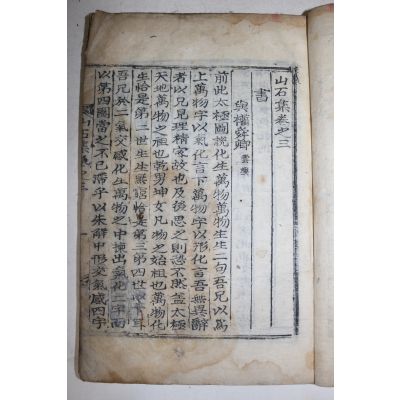 山石集卷之三
書
與權舜卿
前此太極圖說化生萬物萬物生生二句吾兄以爲
上萬物字以氣化言下萬物字以形化言吾無異辭
者以兄見理精密故也及後思之則恐不然蓋太極
天地萬物之祖也乾男坤女凡物之始祖也萬物化
生恰是第二世生生無窮恰是第三第四世以下耳
吾兄於二氣交感化生萬物之中揀出氣化二字而
以第四圖當之不已滯乎以朱解中形交氣感四字
山石集卷之三